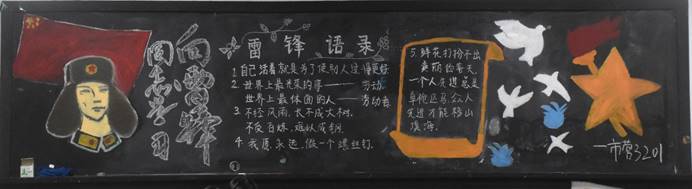 向雷锋
同志学习
雷锋语录
1.自己活着就是为了使别人过得更好
2.世界上最光荣的事——劳动
世界上最体面的人——劳动者
3.不经风雨，长不成大树，
不受百炼，难以成钢。
4.我愿永远做一个螺丝钉。
5.鲜花打扮不出
美丽的春天
一个人先进总是
单枪匹马，众人
先进才能移山
填海。
——市营3201